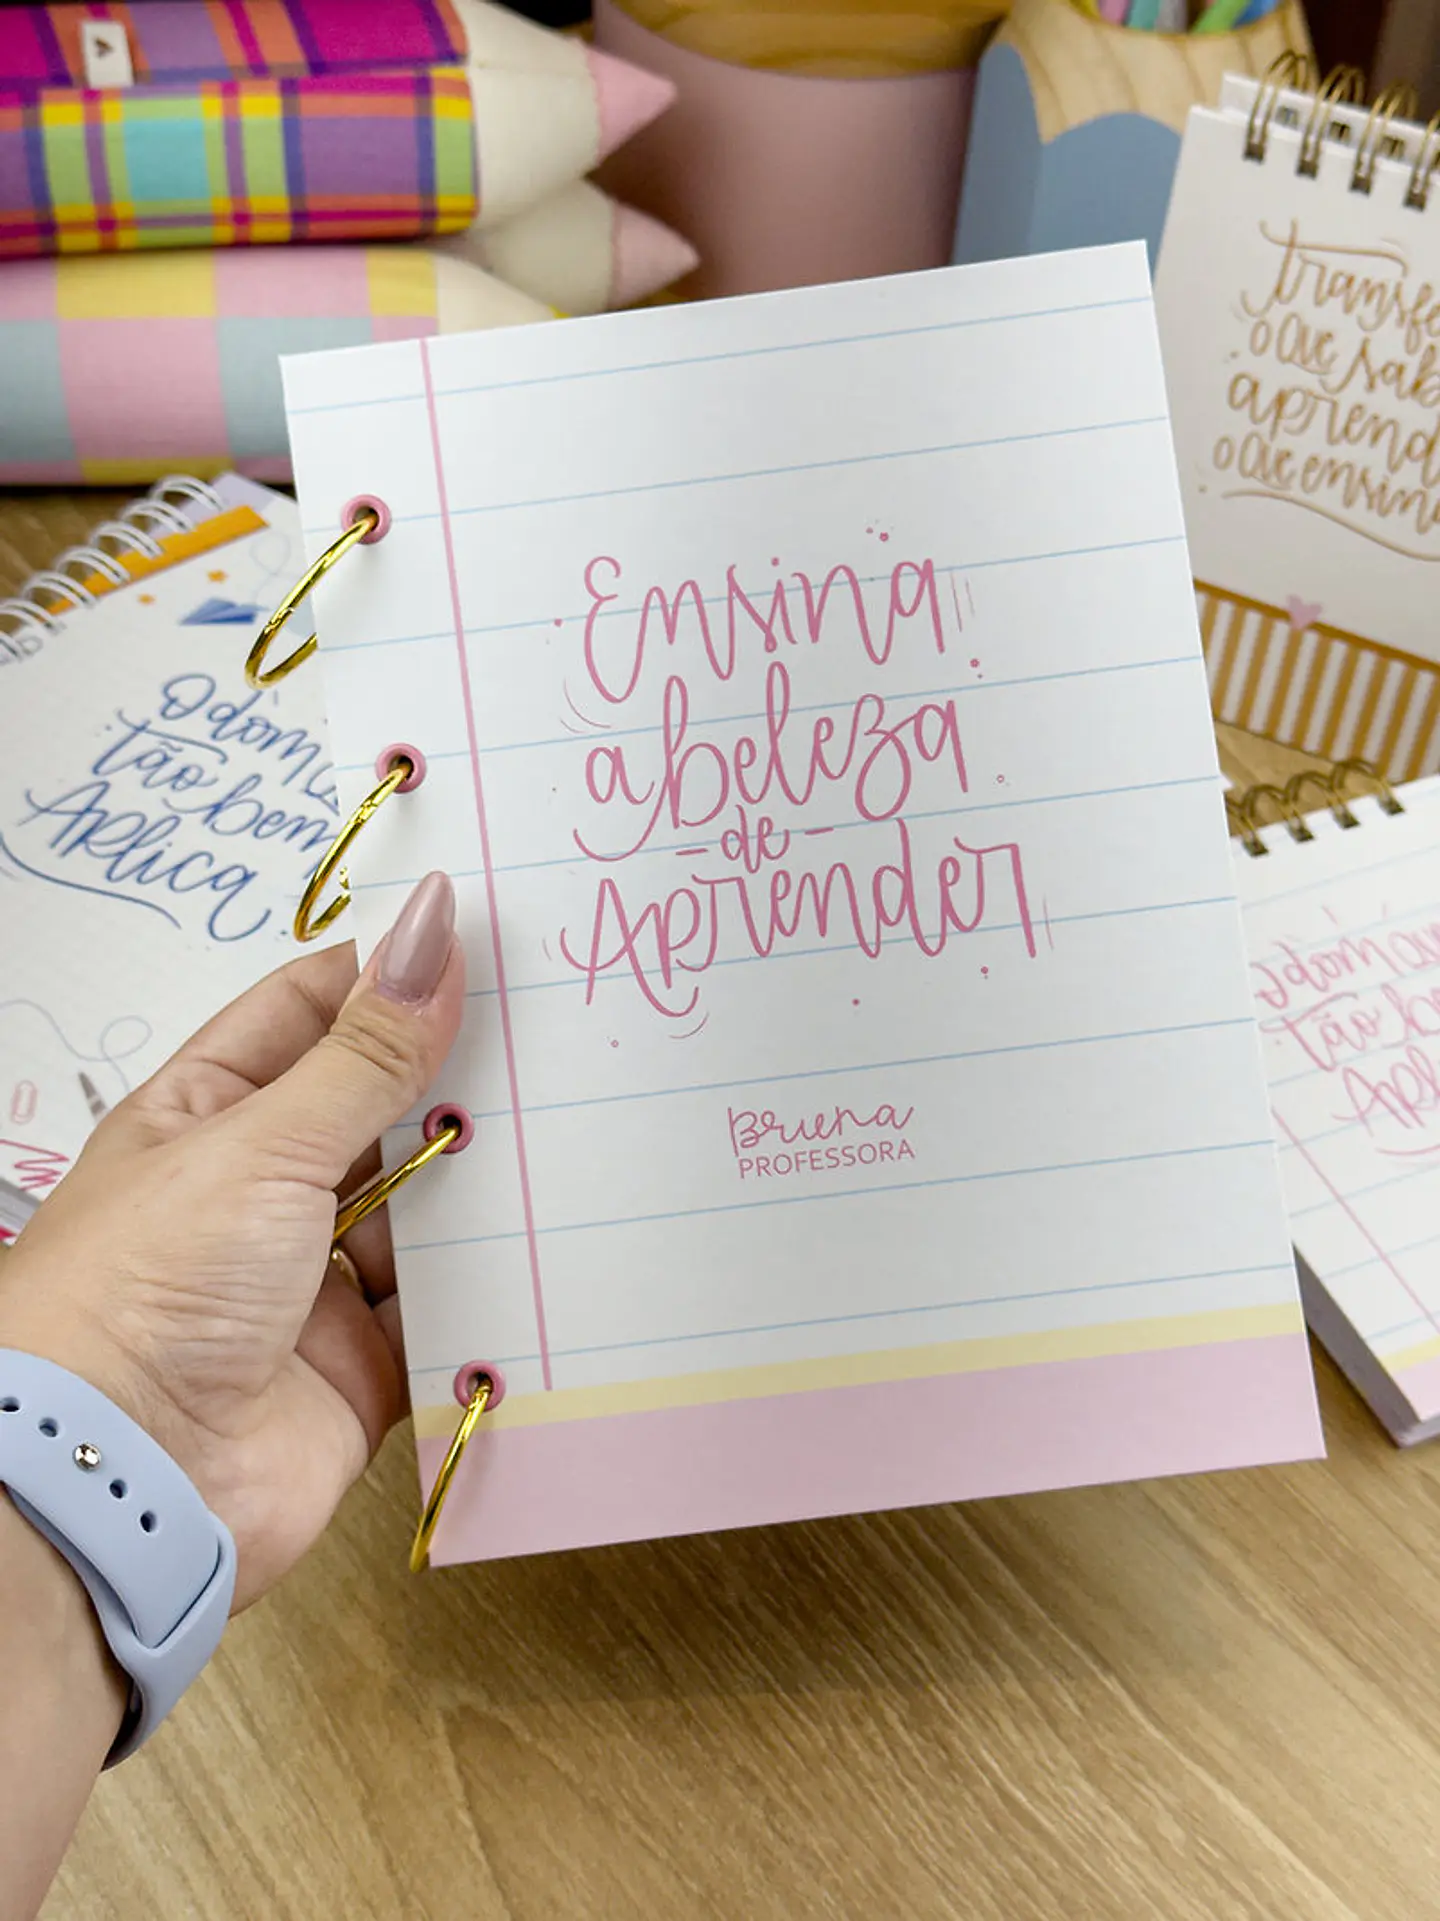 Ensina
a beleza
- de -
Aprender
Bruna
PROFESSORA
O dom
tão bem
Aplica
o que
aprend
o que ensina
O dom que
tão